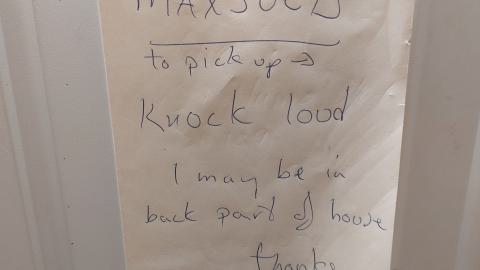 to pick up →
Knock loud
I may be in
back part of house
thanks